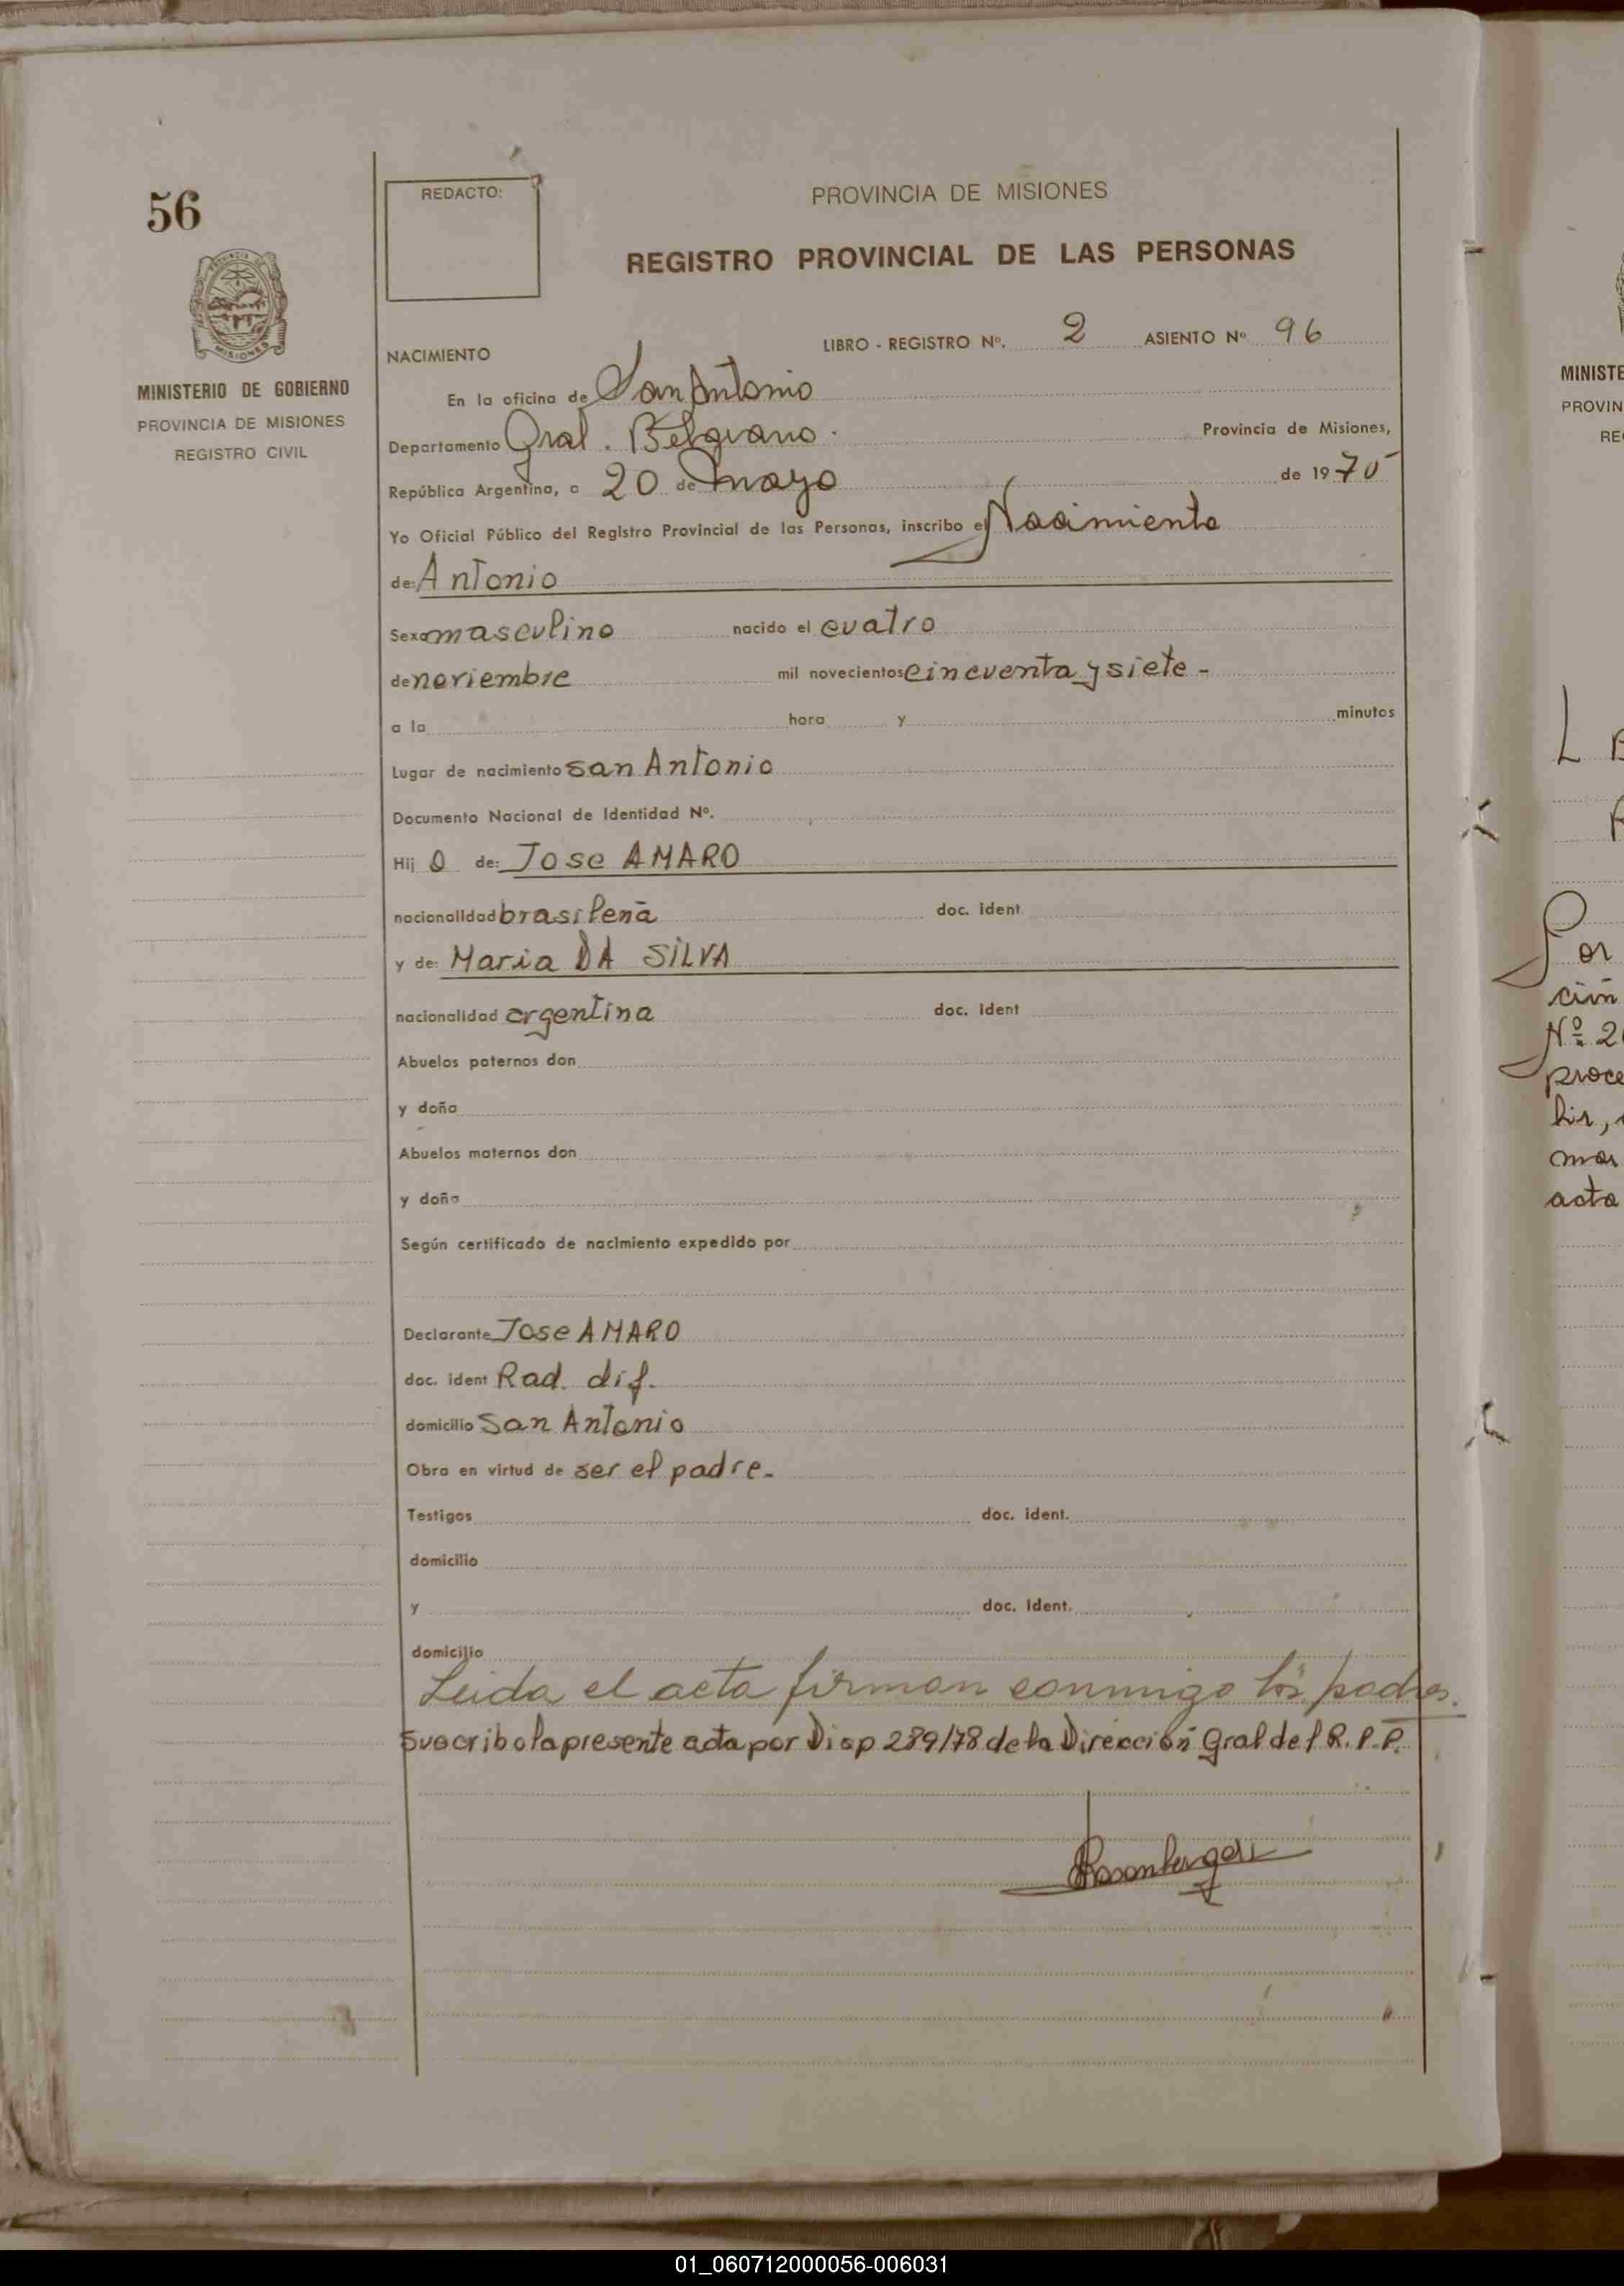 56
REDACTO:
PROVINCIA DE MISIONES
REGISTRO PROVINCIAL DE LAS PERSONAS
MISIONES
MINISTERIO DE GOBIERNO
PROVINCIA DE MISIONES
REGISTRO CIVIL
LIBRO - REGISTRO Nº. 2 ASIENTO Nº 96
NACIMIENTO
En la oficina de San Antonio
Departamento Gral. Belgrano. Provincia de Misiones,
República Argentina, a 20 de mayo de 1970
Yo Oficial Público del Registro Provincial de las Personas, inscribo el Nacimiento
de: Antonio
Sexo masculino nacido el cuatro
de noviembre mil novecientos cincuenta y siete -
a la hora y minutos
Lugar de nacimiento san Antonio
Documento Nacional de Identidad Nº.
Hij o de: Jose AMARO
nacionalidad brasileña doc. ident
y de: Maria DA SILVA
nacionalidad argentina doc. ident
Abuelos paternos don
y doña
Abuelos maternos don
y doña
Según certificado de nacimiento expedido por
Declarante Jose AMARO
doc. ident Rad. dif.
domicilio San Antonio
Obra en virtud de ser el padre.
Testigos doc. ident.
domicilio
y doc. ident.
domicilio
Leida el acta firman conmigo los padres.
Suscribo la presente acta por Disp 289/78 de la Dirección Gral del R. P. P.
MINISTE
PROVIN
RE
L
Por
ción
Nº 2
proce
bir,
mar
acta
01_060712000056-006031